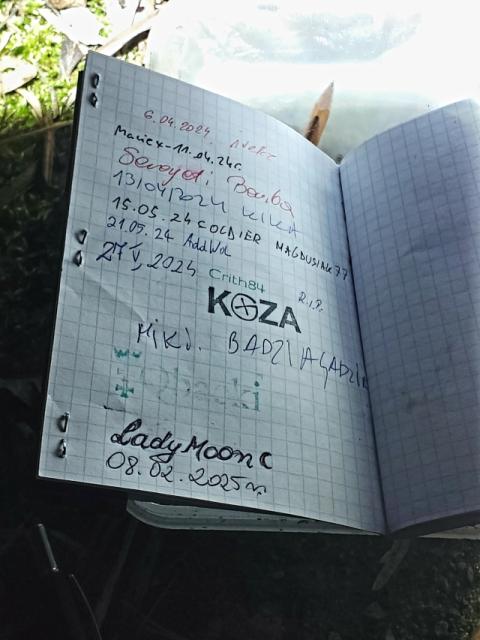 6.04.2024.
Maciex-11.04.24r.
Bomba
13/04/2024 KIKA
15.05.24 COLDIER MAGDUSIAK77
21.05.24 AddWol
27 V 2024
Crith84
R.I.P.
KOZA
MIKI. BADZIAGADZIA
LadyMoon C
08.02.2025r.